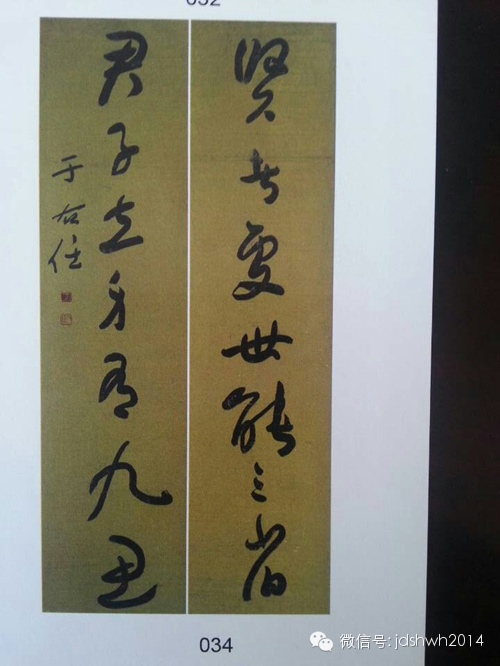 032
贤者处世能三省
君子立身有九思
于右任
034
微信号: jdshwh2014